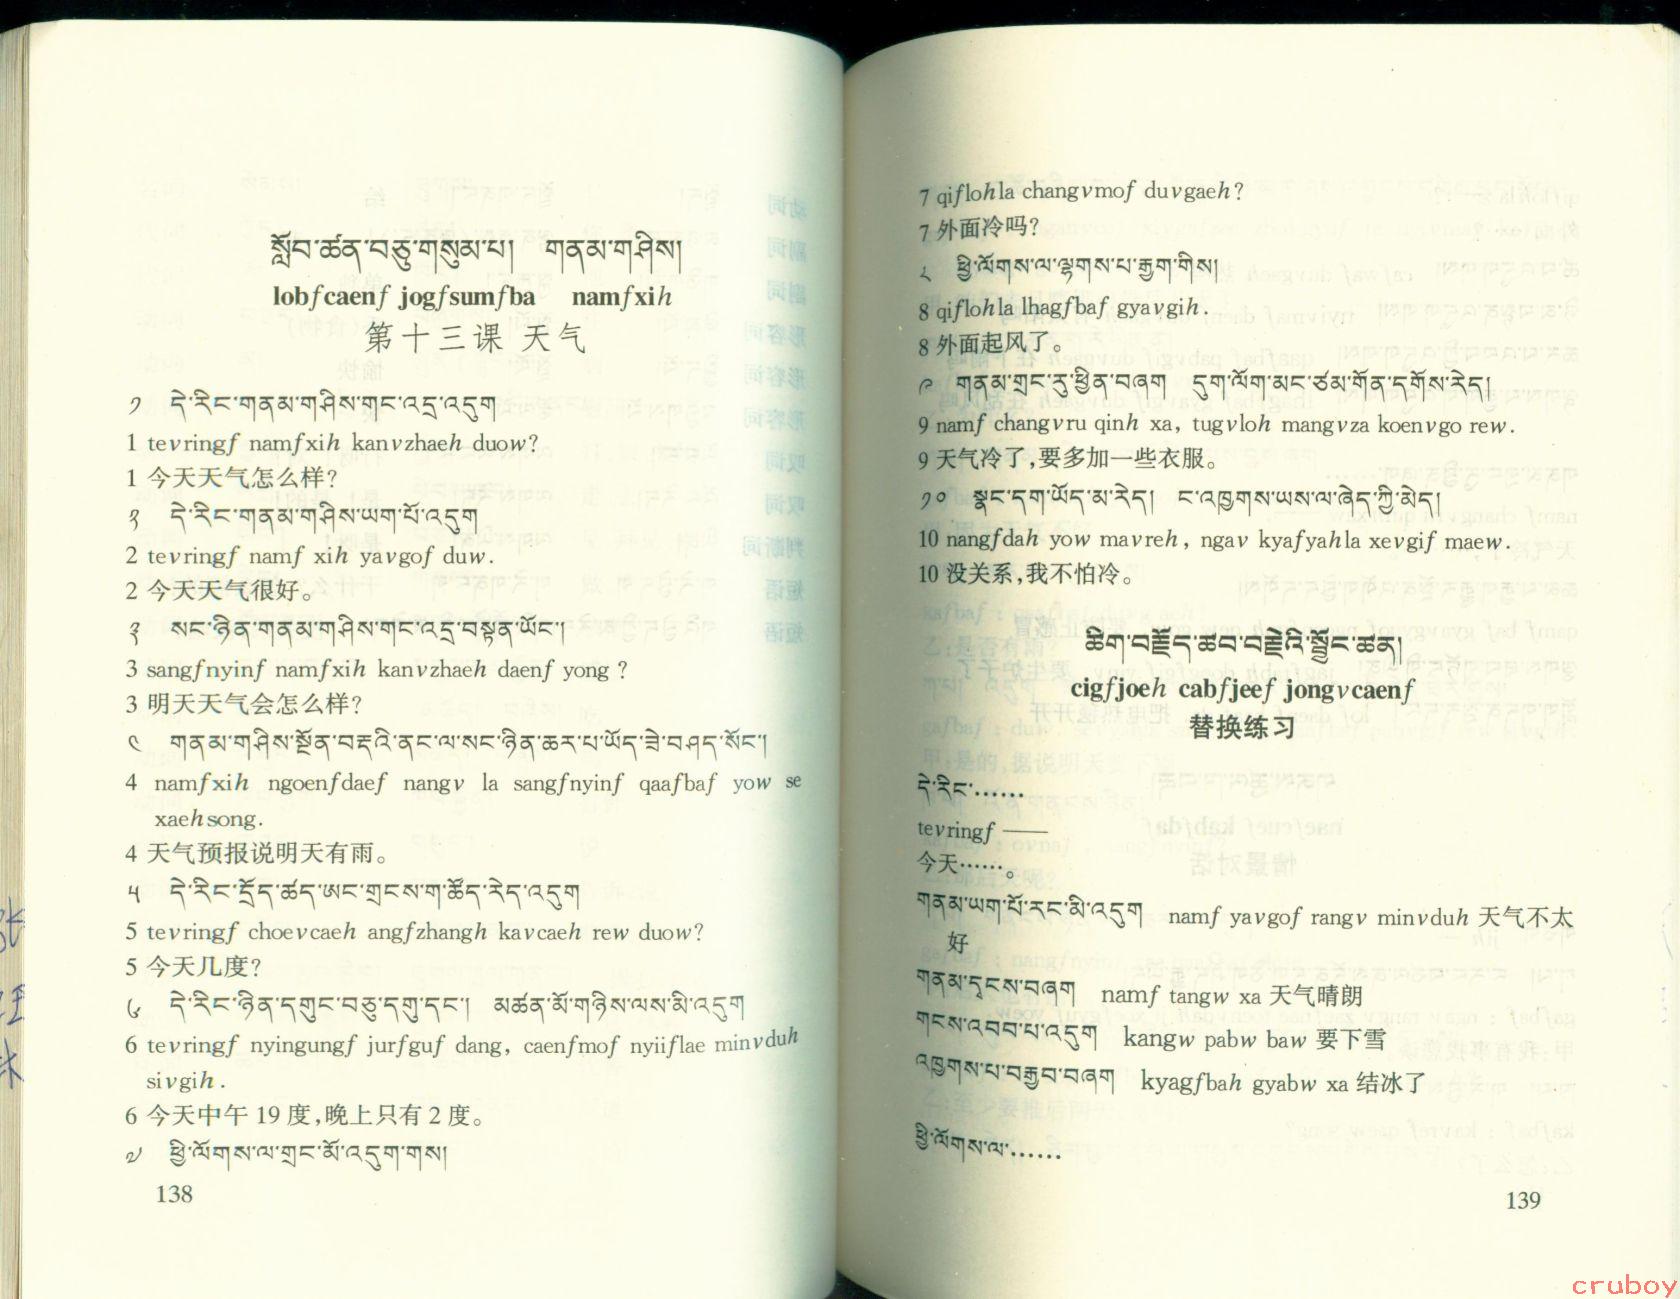 སློབ་ཚན་བཅུ་གསུམ་པ། གནམ་གཤིས།
lobfcaenf jogfsumfba namfxih
第十三课 天气
༡ དེ་རིང་གནམ་གཤིས་གང་འདྲ་འདུག
1 tevringf namfxih kanvzhaeh duow?
1 今天天气怎么样?
༢ དེ་རིང་གནམ་གཤིས་ཡག་པོ་འདུག
2 tevringf namf xih yavgof duw.
2 今天天气很好。
༣ སང་ཉིན་གནམ་གཤིས་གང་འདྲ་བསྟན་ཡོང་།
3 sangfnyinf namfxih kanvzhaeh daenf yong ?
3 明天天气会怎么样?
༤ གནམ་གཤིས་སྔོན་བརྡའི་ནང་ལ་སང་ཉིན་ཆར་པ་ཡོད་ཟེ་བཤད་སོང་།
4 namfxih ngoenfdaef nangv la sangfnyinf qaafbaf yow se
xaehsong.
4 天气预报说明天有雨。
༥ དེ་རིང་དྲོད་ཚད་ཨང་གྲངས་ག་ཚོད་རེད་འདུག
5 tevringf choevcaeh angfzhangh kavcaeh rew duow?
5 今天几度?
༦ དེ་རིང་ཉིན་དགུང་བཅུ་དགུ་དང་། མཚན་མོ་གཉིས་ལས་མི་འདུག
6 tevringf nyingungf jurfguf dang, caenfmof nyiiflae minvduh
sivgih .
6 今天中午 19 度,晚上只有 2 度。
༧ ཕྱི་ལོགས་ལ་གྲང་མོ་འདུག་གས།
138
7 qiflohla changvmof duvgaeh?
7 外面冷吗?
༨ ཕྱི་ལོགས་ལ་ལྷགས་པ་རྒྱག་གིས།
8 qiflohla lhagfbaf gyavgih.
8 外面起风了。
༩ གནམ་གྲང་རུ་ཕྱིན་བཞག དུག་ལོག་མང་ཙམ་གོན་དགོས་རེད།
9 namf changvru qinh xa, tugvloh mangvza koenvgo rew.
9 天气冷了,要多加一些衣服。
༡༠ སྣང་དག་ཡོད་མ་རེད། ང་འཁྱགས་ཡས་ལ་ཞེད་ཀྱི་མེད།
10 nangfdah yow mavreh, ngav kyafyahla xevgif maew.
10 没关系,我不怕冷。
ཚིག་བརྗོད་ཚབ་བརྗེའི་སྦྱོང་ཚན།
cigfjoeh cabfjeef jongvcaenf
替换练习
དེ་རིང་……
tevringf ——
今天……。
གནམ་ཡག་པོ་རང་མི་འདུག namf yavgof rangv minvduh 天气不太
好
གནམ་དྭངས་བཞག namf tangw xa 天气晴朗
གངས་འབབ་པ་འདུག kangw pabw baw 要下雪
འཁྱགས་པ་བརྒྱབ་བཞག kyagfbah gyabw xa 结冰了
ཕྱི་ལོགས་ལ་……
139
cruboy